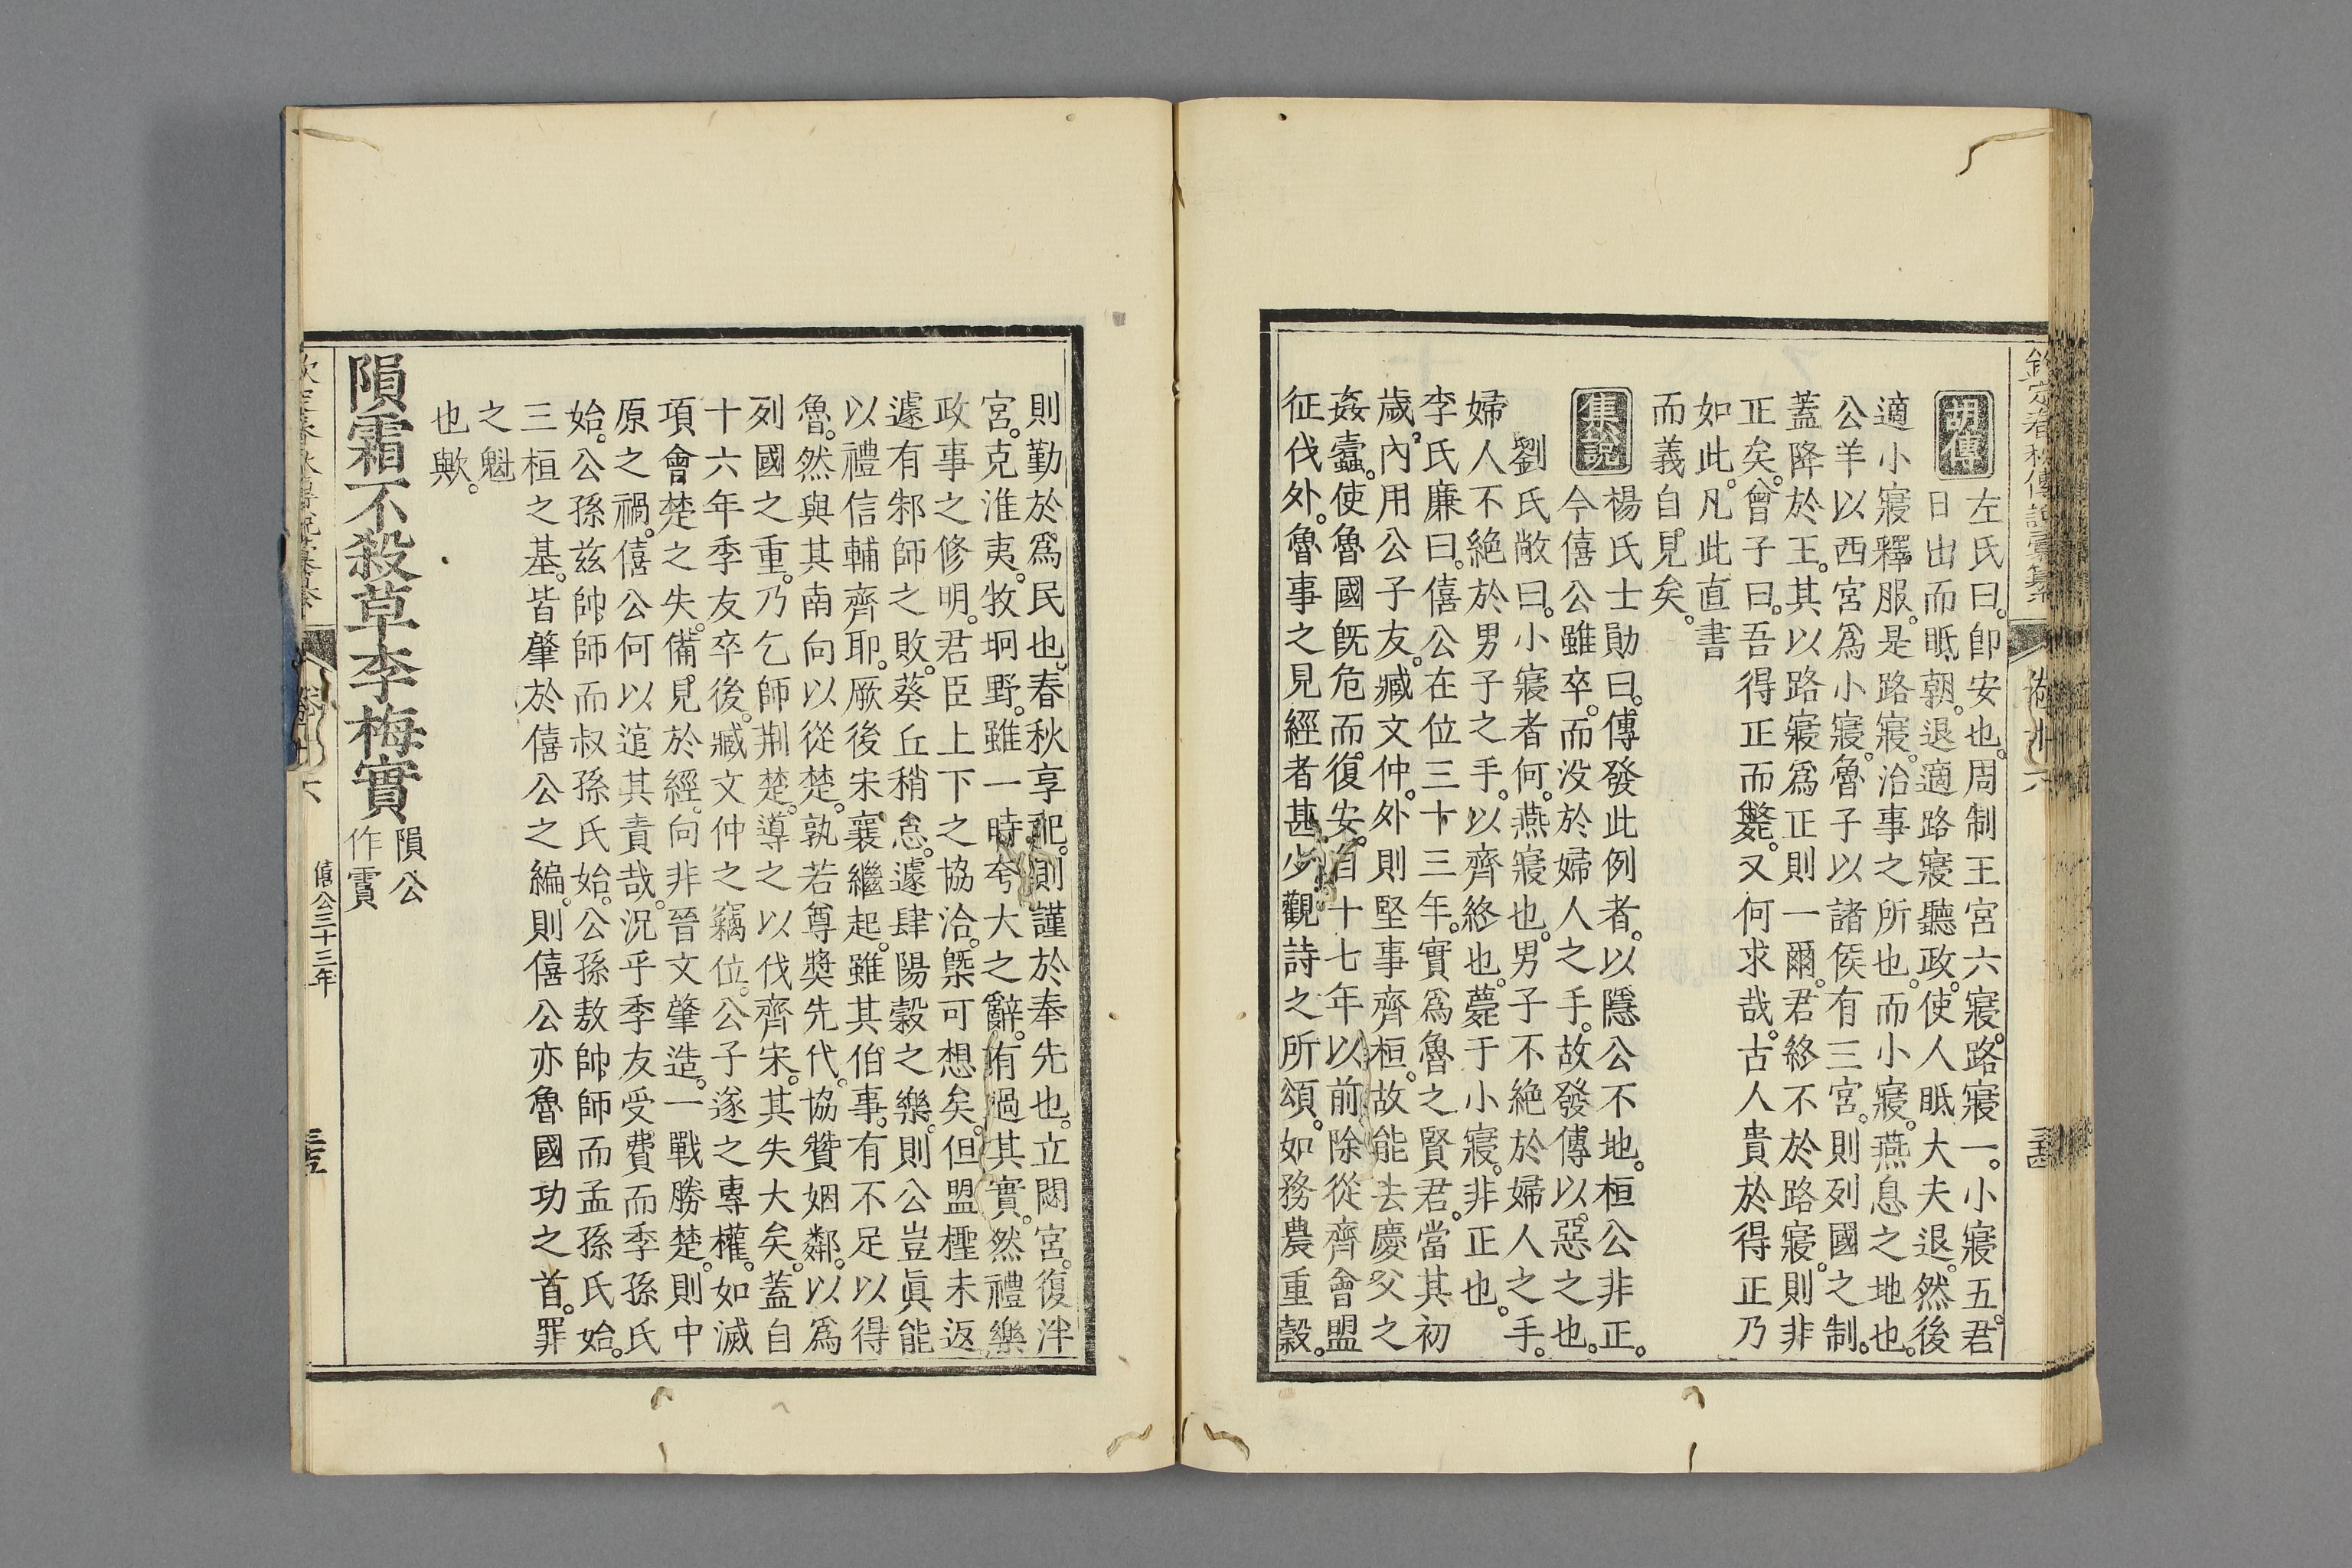 胡傳
左氏曰。卽安也。周制王宮六寢。路寢一。小寢五。君
日出而眡朝。退適路寢聽政。使人眡大夫退。然後
適小寢釋服。是路寢。治事之所也。而小寢。燕息之地也。
公羊以西宮爲小寢。魯子以諸侯有三宮。則列國之制。
蓋降於王。其以路寢爲正則一爾。君終不於路寢。則非
正矣。曾子曰。吾得正而斃。又何求哉。古人貴於得正乃
如此。凡此直書
而義自見矣。
集說
楊氏士勛曰。傳發此例者。以隱公不地。桓公非正。
今僖公雖卒。而没於婦人之手。故發傳以惡之也。
劉氏敞曰。小寢者何。燕寢也。男子不絶於婦人之手。
婦人不絶於男子之手。以齊終也。薨于小寢。非正也。
李氏廉曰。僖公在位三十三年。實爲魯之賢君。當其初
歲。內用公子友。臧文仲。外則堅事齊桓。故能去慶父之
姦蠧。使魯國旣危而復安。自十七年以前除從齊會盟
征伐外。魯事之見經者甚少。觀詩之所頌。如務農重穀。
則勤於爲民也。春秋享祀。則謹於奉先也。立閟宮。復泮
宮。克淮夷。牧坰野。雖一時夸大之辭。有過其實。然禮樂
政事之修明。君臣上下之協洽。槩可想矣。但盟檉未返。
遽有邾師之敗。葵丘稍怠。遽肆陽穀之樂。則公豈眞能
以禮信輔齊耶。厥後宋襄繼起。雖其伯事。有不足以得
魯。然與其南向以從楚。孰若尊奬先代。協贊姻鄰。以爲
列國之重。乃乞師荆楚。導之以伐齊宋。其失大矣。蓋自
十六年季友卒後。臧文仲之竊位。公子遂之專權。如滅
項會楚之失。備見於經。向非晉文肇造。一戰勝楚。則中
原之禍。僖公何以逭其責哉。況乎季友受費而季孫氏
始。公孫兹帥師而叔孫氏始。公孫敖帥師而孟孫氏始。
三桓之基。皆肇於僖公之編。則僖公亦魯國功之首。罪
之魁
也歟。
隕霜不殺草李梅實
隕公
作霣
僖公三十三年